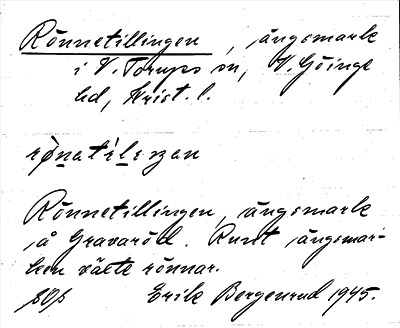 Rönnetillingen, ängsmark
i V. Torups sn, V. Göinge
hd, Krist. l.
Rönnetillingen, ängsmark
på Gravaröd. Runt ängsmar-
ken växte rönnar.
Erik Bergenrud 1945.